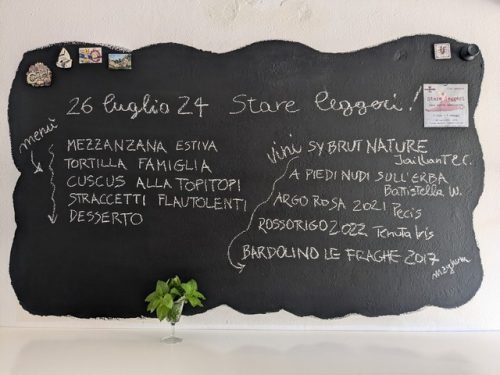 26 luglio 24 Stare leggeri!
menù
MEZZANZANA ESTIVA
TORTILLA FAMIGLIA
CUSCUS ALLA TOPITOPI
STRACCETTI FLAUTOLENTI
DESSERTO
vini
SY BRUT NATURE
Jaillant & C.
A PIEDI NUDI SULL'ERBA
Battistella W.
ARGO ROSA 2021
Pecis
ROSSORIGO 2022 Tenuta Iris
BARDOLINO LE FRAGHE 2017
magnum
Stare leggeri